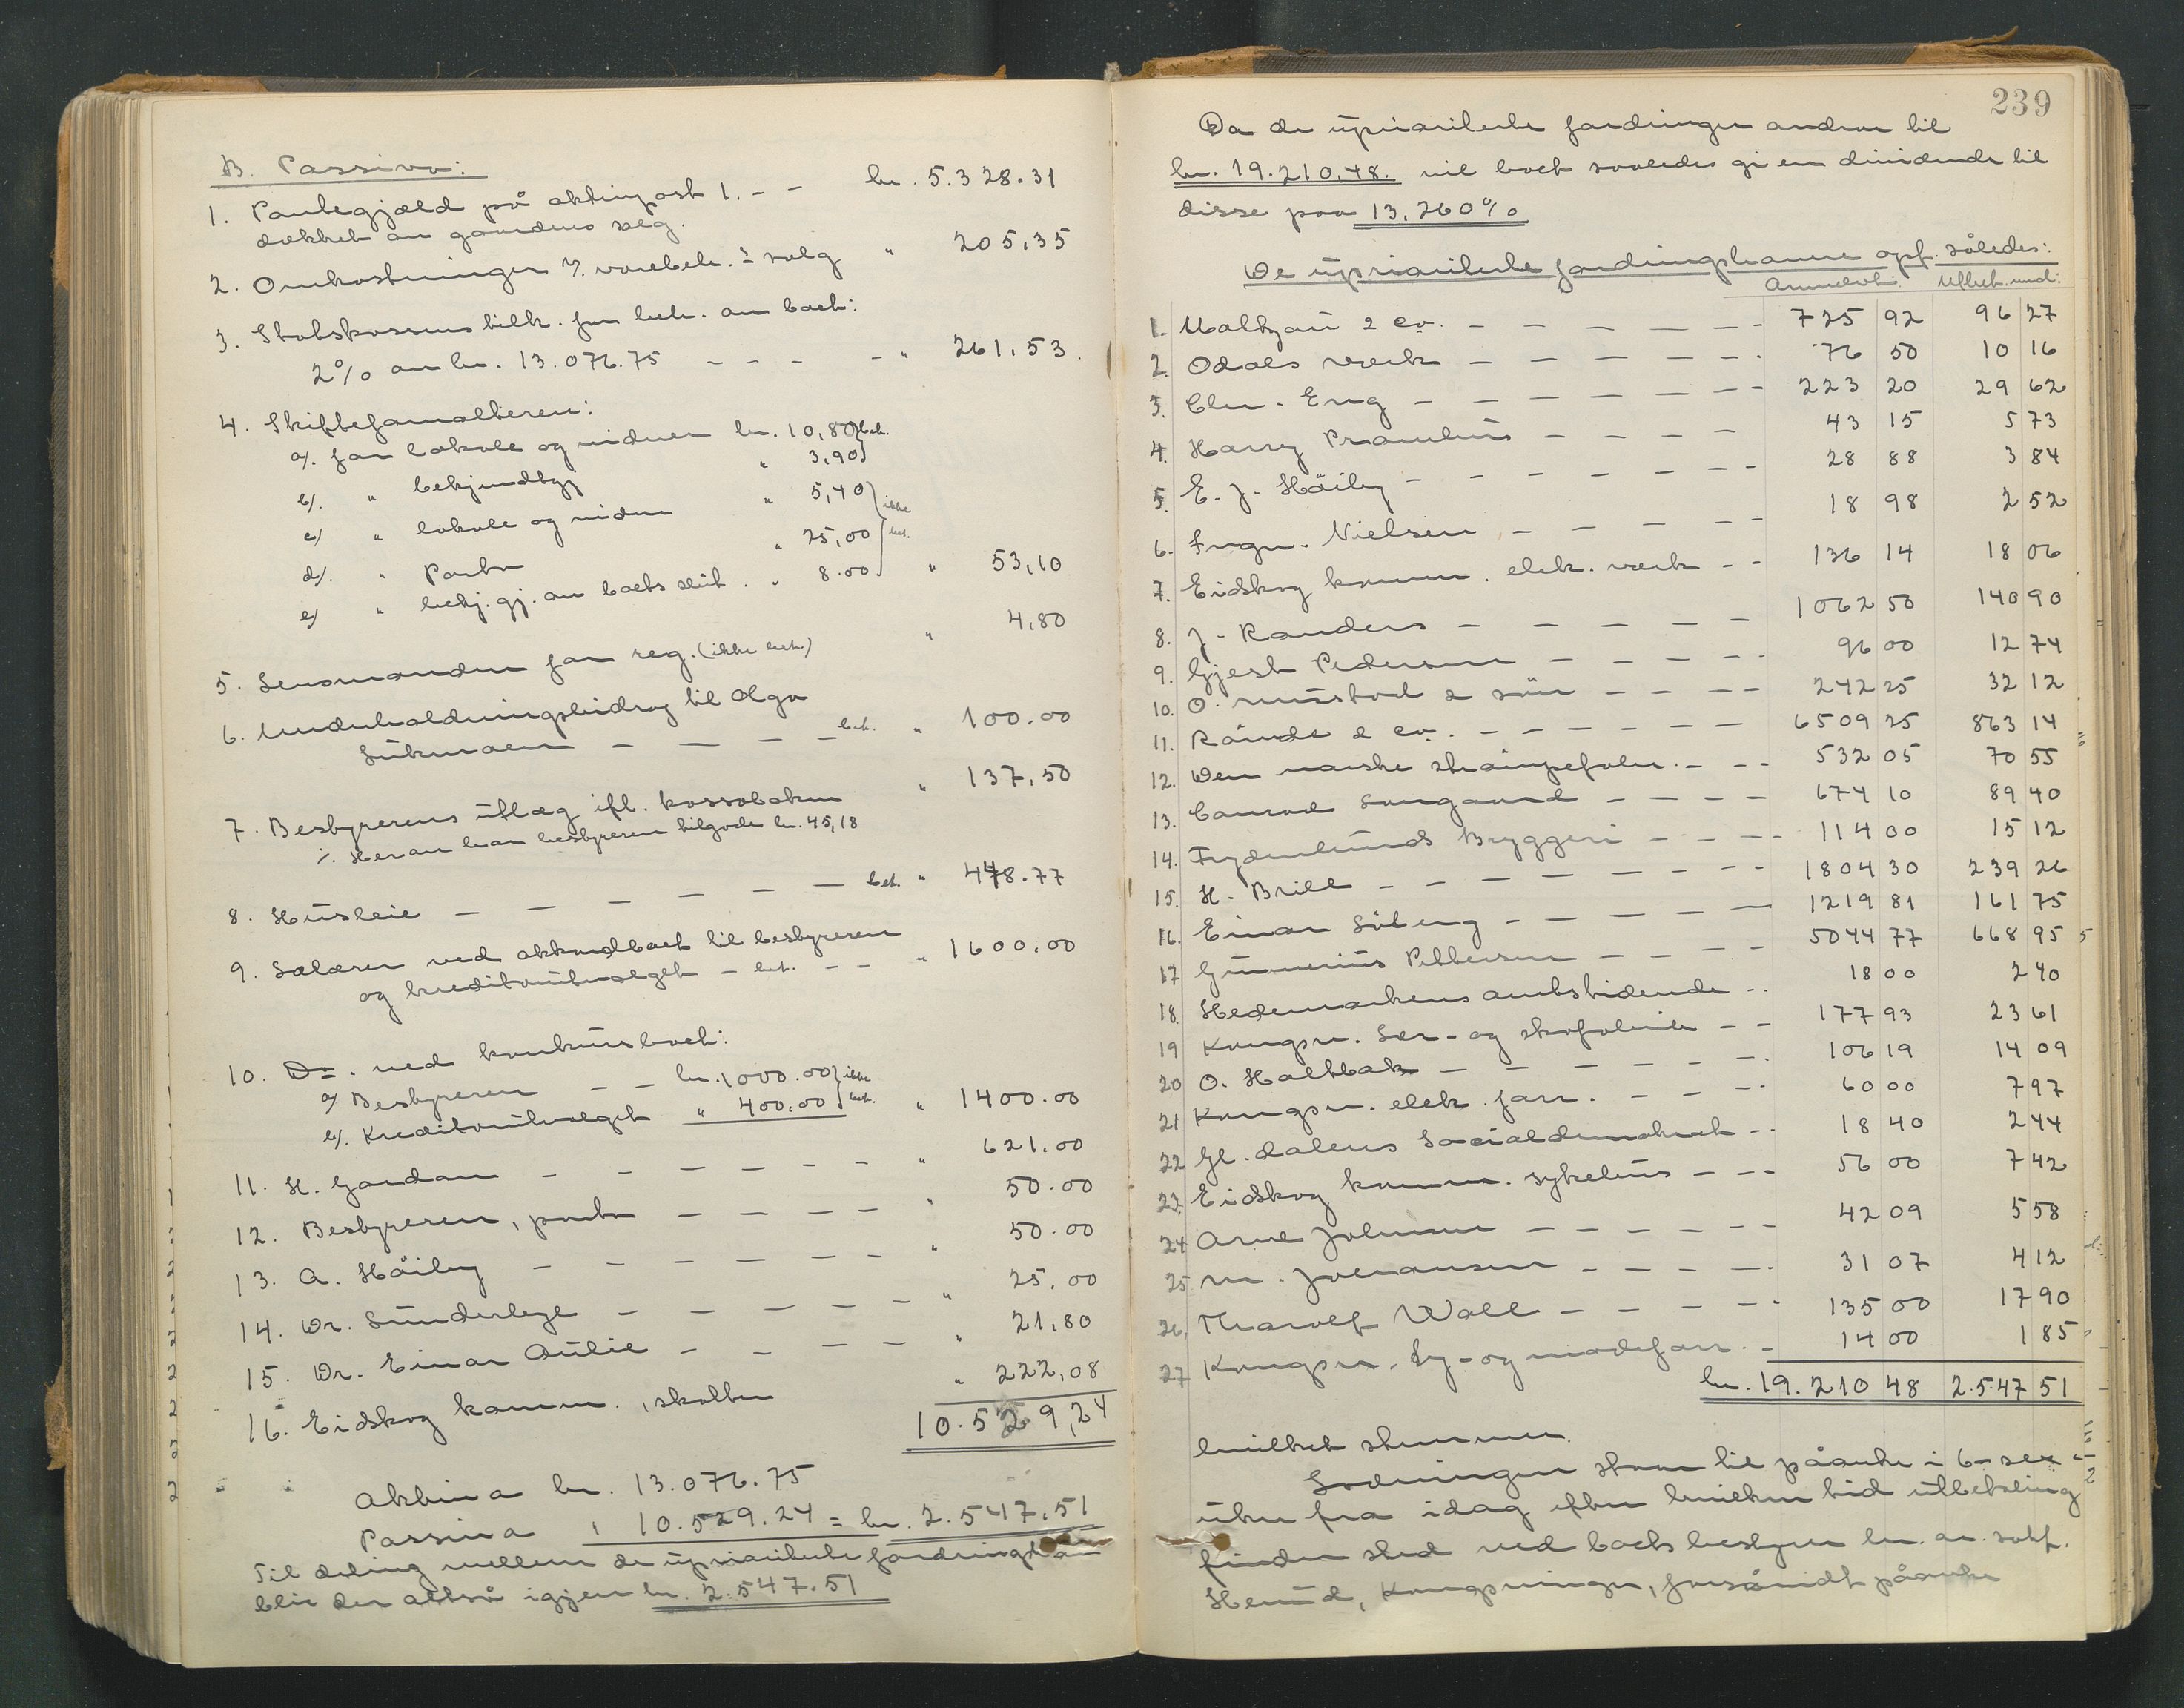 B. Passiva:
1. Pantegjæld på aktivpost 1. - - kr. 5.328.31
dækket av gaardens salg.
2. Omkostninger v. varebeh. & salg " 205,35
3. Statskassens tilk. for beh. av boet:
2% av kr. 13.076.75 - - - - " 261,53.
4. Skifteforvalteren:
a/. for lokale og vidner kr. 10,80 } bet.
b/. " bekjendtgj. " 3,90 }
c/ " lokale og vidner " 5,40 } ikke
d/. " Porto " 25,00 } bet.
e/ " bekj.gj. av boets slut. " 8.00 } " 53,10
5. Lensmanden for reg. (ikke bet.) " 4,80
6. Underholdningsbidrag til Olga
- - - - bet. " 100.00
7. Bestyrerens utlæg ifl. kassaboken " 137,50
./. Herav har bestyreren tilgode kr. 45,18
8. Husleie - - - - - - bet. " 448.77
9. Salærer ved akkordboet til bestyreren
og kreditorutvalget - bet. - - " 1600.00
10. Do. ved konkursboet:
a/ Bestyreren - - kr. 1000.00 } ikke
b/. Kreditorutvalget " 400.00 } bet. " 1400.00
11. H. Gardar - - - - - - " 621.00
12. Bestyreren, porto - - - - " 50.00
13. A. Häiby - - - - - " 50.00
14. Dr. Sünderbye - - - - - " 25,00
15. Dr. Einar Aulie - - - - " 21,80
16. Eidskog komm., skatter " 222,08
10.529,24
Aktiva kr. 13.076.75
Passiva " 10.529.24 = kr. 2.547,51
Til deling mellem de upriviliterte fordringshav
blir der altså igjen kr. 2.547.51
239
Da de upriviliterte fordringer andrar til
kr. 19.210,48. vil boet saaledes gi en dividende til
disse paa 13,260%
De upriviliterte fordringshavere opf. således:
Anmeldt: Utbet. med:
1. Maltzau & Co. - - - - - - 725 92 96 27
2. Odals verk - - - - - - 76 50 10 16
3. Chr. Eng - - - - - - - 223 20 29 62
4. Harry - - - - 43 15 5 73
5. E. J. Häiby - - - - - - 28 88 3 84
6. Ingv. Nielsen - - - - - 18 98 2 52
7. Eidskog komm. elek. verk - - 136 14 18 06
8. J. Randers - - - - - 1062 50 140 90
9. Gjest Pedersen - - - - - 96 00 12 74
10. O. Mustad & sön - - - - 242 25 32 12
11. & Co. - - - - - - 6509 25 863 14
12. Den norske - - - 532 05 70 55
13. Conrad Langaard - - - - 674 10 89 40
14. Frydenlunds Bryggeri - - - - 114 00 15 12
15. H. Brill - - - - - - - - 1804 30 239 26
16. Einar - - - - - 1219 81 161 75
17 Gunnerius Pettersen - - - - 5044 77 668 95
18. Hedemarkens amtstidende - - 18 00 2 40
19 Kongsv. Lær- og skofabrik - - 177 93 23 61
20 O. Holtbak - - - - - - 106 19 14 09
21 Kongsv. elek. forr. - - - - 60 00 7 97
22 Gl. dalens Socialdemokrat - - 18 40 2 44
23. Eidskog komm. sykehus - - - 56 00 7 42
24 Arne Johnsen - - - - - - 42 09 5 58
25 M. Johansen - - - - - 31 07 4 12
26. Thorolf Wall - - - - - 135 00 17 90
27 Kongsv. Sy- og modeforr. - 14 00 1 85
kr. 19.210 48 2.547 51
hvilket stemmer.
Lodningen staar til påanke i 6 - sex -
uker fra idag efter hvilken tid utbetaling
finder sted ved boets bestyrer hr. ov. sakf.
Herud, Kongsvinger, forsåvidt påanke